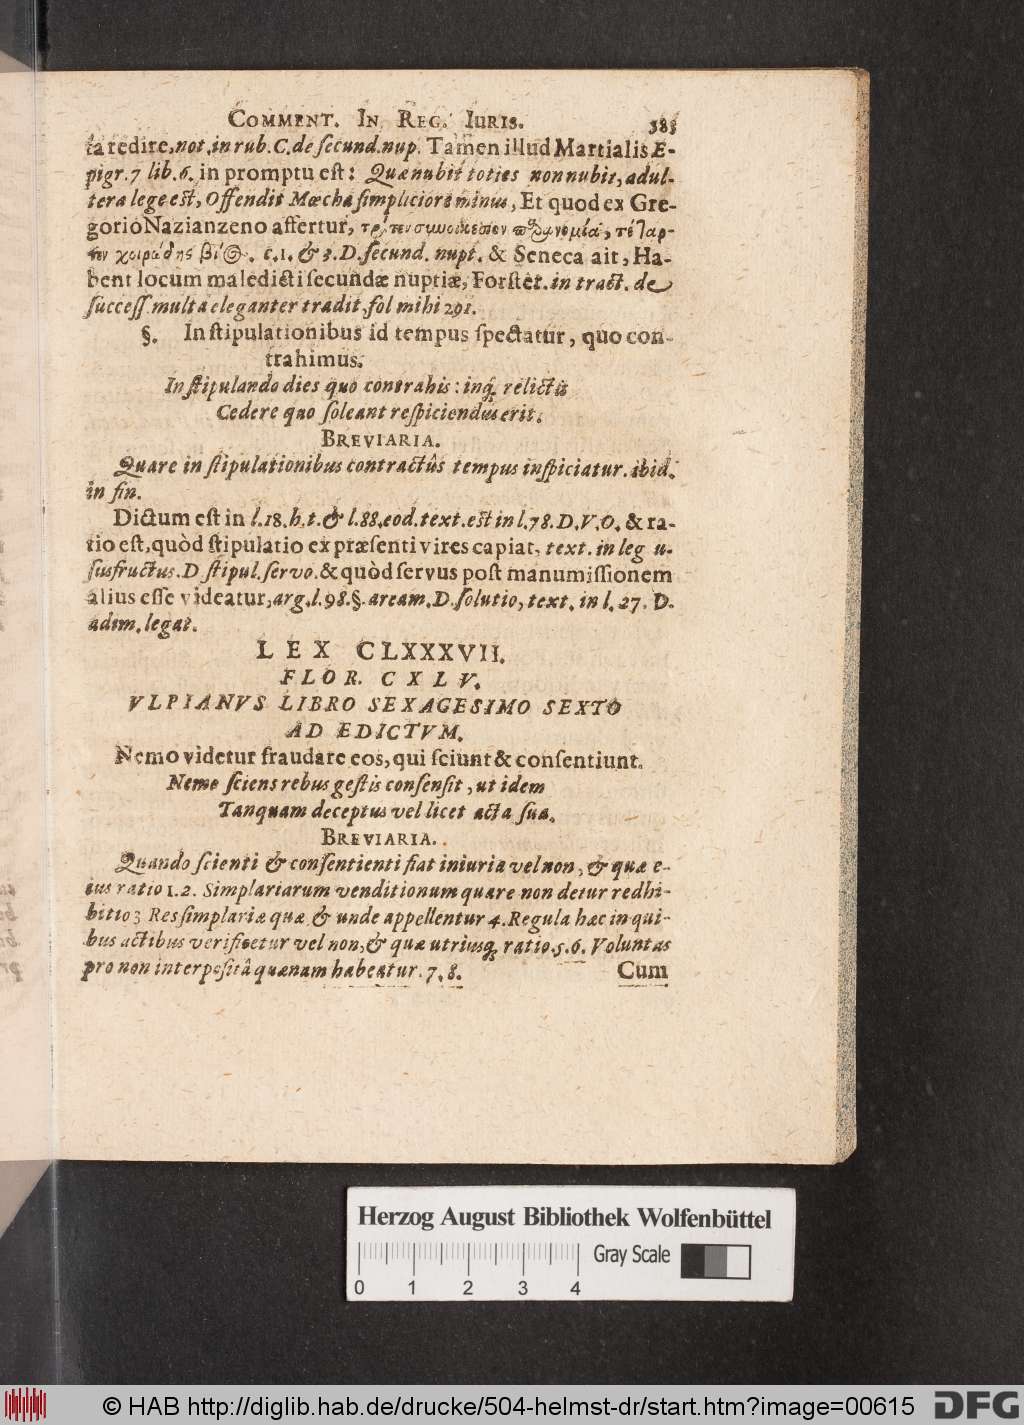 COMMENT. IN REG. IURIS. 383
ta redire, not. in rub. C. de ſecund. nup. Tamen illud Martialis E-
pigr. 7 lib. 6. in promptu eſt: Quæ nubit toties non nubit, adul-
tera lege eſt, Offendit Mœcha ſimpliciore minus, Et quod ex Gre-
gorio Nazianzeno affertur, τρίτην συνοικεσίαν παρανομία, τέταρ-
την χοιρώδης βίος. c. 1. & 3. D. ſecund. nupt. & Seneca ait, Ha-
bent locum maledicti ſecundæ nuptiæ, Forſter. in tract. de
ſucceſſ. multa eleganter tradit, fol mihi 291.
§. In ſtipulationibus id tempus ſpectatur, quo con-
trahimus.
In ſtipulando dies quo contrahis: inq; relictis
Cedere quo ſoleant reſpiciendus erit.
BREVIARIA.
Quare in ſtipulationibus contractûs tempus inſpiciatur. ibid.
in fin.
Dictum eſt in l. 18. h. t. & l. 88. eod. text. eſt in l. 78. D. V. O. & ra-
tio eſt, quòd ſtipulatio ex præſenti vires capiat, text. in leg u-
ſusfructus. D ſtipul. ſervo. & quòd ſervus poſt manumiſſionem
alius eſſe videatur, arg. l. 98. §. aream. D. ſolutio, text. in l. 27. D.
adim. legat.
LEX CLXXXVII.
FLOR. CXLV.
VLPIANVS LIBRO SEXAGESIMO SEXTO
AD EDICTVM.
Nemo videtur fraudare eos, qui ſciunt & conſentiunt.
Nemo ſciens rebus geſtis conſenſit, ut idem
Tanquam deceptus vel licet acta ſua.
BREVIARIA.
Quando ſcienti & conſentienti fiat iniuria vel non, & quæ e-
ius ratio 1. 2. Simplariarum venditionum quare non detur redhi-
bitio 3 Res ſimplariæ quæ & unde appellentur 4. Regula hæc in qui-
bus actibus verificetur vel non, & quæ utriusq; ratio. 5. 6. Voluntas
pro non interpoſitâ quænam habeatur. 7. 8. Cum
Herzog August Bibliothek Wolfenbüttel
Gray Scale
0 1 2 3 4
© HAB http://diglib.hab.de/drucke/504-helmst-dr/start.htm?image=00615 DFG